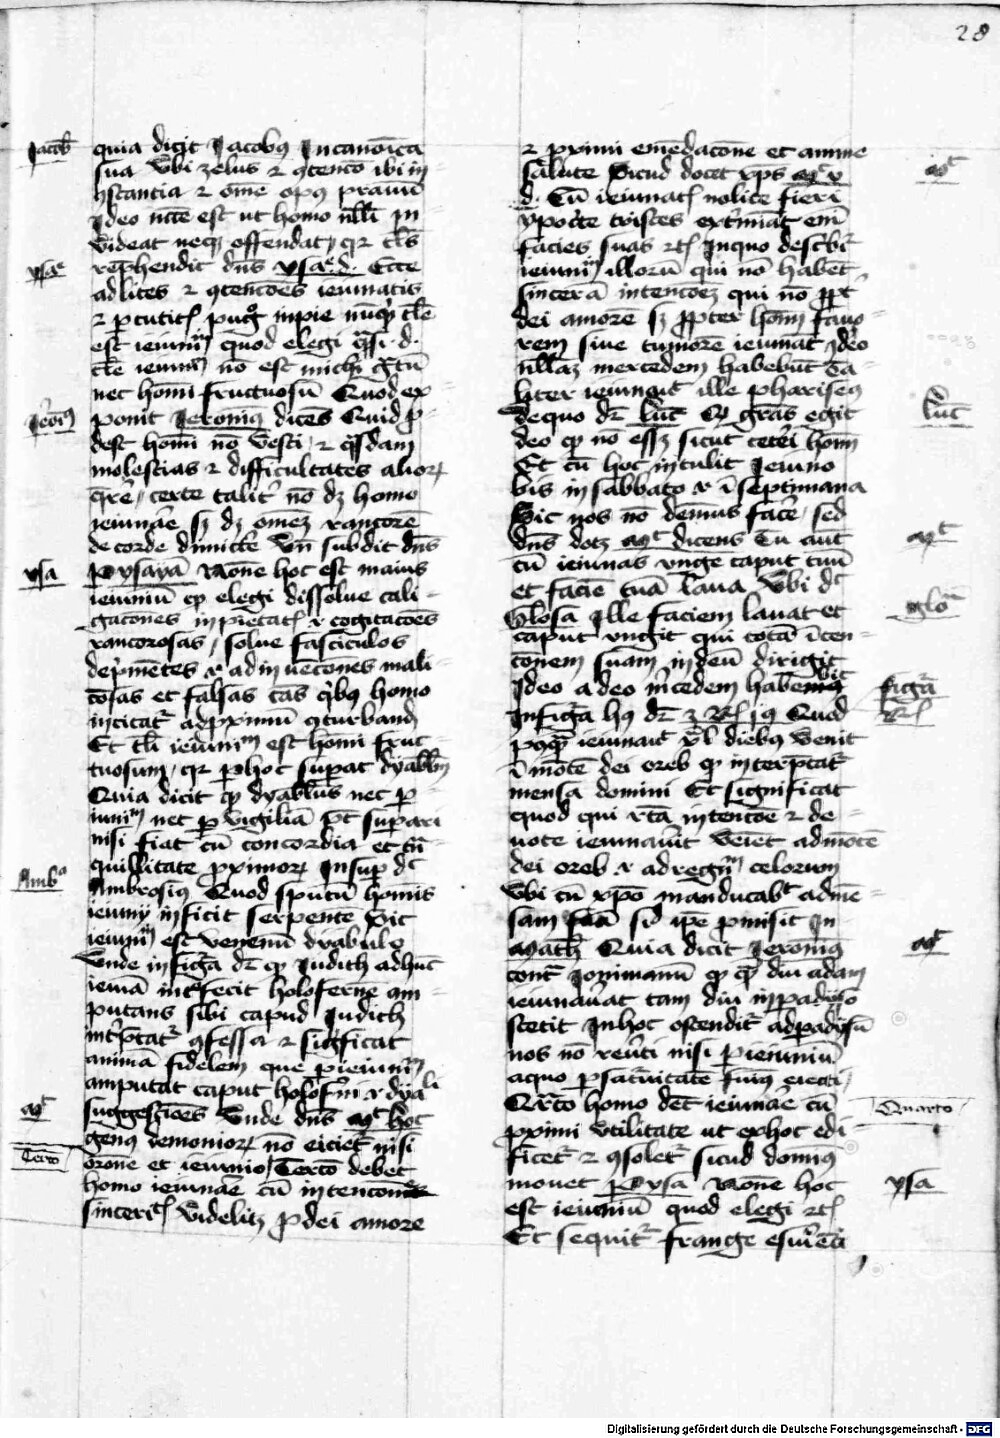 28
Jacob
quia dicit Jacobus In canonica
sua Vbi zelus et contencio ibi in
constantia et omne opus prauum
Ideo necesse est ut homo nulli in
videat neque offendat quia tales
reprehendit dominus ysa. d. Ecce
ad lites et contenciones ieiunatis
et percutitis pugno impie nunquid tale
est ieiunium quod elegi quasi d.
tale ieiunium non est michi gratum
nec homini fructuosum Quod ex
ponit Jeronimus dicens Quid pro
dest homini non vesci et quasdam
molestias et difficultates aliorum
querere certe taliter non debet homo
ieiunare sed debet omnem rancorem
de corde dimittere Vnde subdit dominus
per Ysayam None hoc est maius
ieiunium quod elegi dissolue cali
gaciones impietatis et cogitaciones
rancorosas solue fasciculos
deprimentes et adinuenciones mali
ciosas et falsas causas quibus homo
incitatur ad proximum conturbandum
Et tale ieiunium est homini fruc
tuosum quia per hoc superat dyabolum
Quia dicit quod dyabolus nec per
iunium nec per vigiliam potest superari
nisi fiat cum concordia et tran
quillitate proximorum Insuper dicit
Ambrosius Quod sputum hominis
ieiuni inficit serpentem Sic
ieiunium est venenum dyabulo
Vnde in figura dicitur quod Judith adhuc
ieiuna interfecit holofernem am
putans sibi capud Judith
interpretatur confessa et significat
animam fidelem que per ieiunium
amputat caput holoferni et dyaboli
suggestiones Vnde dominus mat hoc
genus demoniorum non eicietur nisi
oracione et ieiunio Tercio debet
homo ieiunare cum intencione
sinceritatis Videlicet pro dei amore
ysa
Jeronimus
ysa
Amb
mat
Tercio
et proximi emendacione et anime
salute Sicud docet christus mat v
d. Cum ieiunatis nolite fieri
ypocrite tristes exterminant enim
facies suas etc In quo describitur
ieiunium illorum qui non habent
sinceram intencionem qui non propter
dei amorem sed propter hominum fauo
rem siue timorem ieiunant Ideo
nullam mercedem habebunt Ta
liter ieiunauit ille phariseus
de quo dicitur Luc Qui gracias egit
deo quod non esset sicut ceteri homines
Et cum hoc intulit Jeiuno
bis in sabbato et in septimana
Sic nos non debemus facere sed
dominus docet mat dicens Tu autem
cum ieiunas vnge caput tuum
et faciem tuam laua Vbi dicit
Glosa Ille faciem lauat et
caput vngit qui totam inten
cionem suam in deum dirigit
Ideo a deo mercedem habebit
In figura huius dicitur Quod
postquam ieiunauit diebus venit
in montem dei oreb quod interpretatur
mensa domini Et significat
quod qui recta intencione et de
uote ieiunauerit veniet ad montem
dei oreb et ad regnum celorum
Vbi cum christo manducabit ad men
sam suam sicut ipse promisit In
matheo Quia dicit Jeronimus
contra Jovinianum quod quamdiu adam
ieiunauerat tam diu in paradyso
stetit In hoc ostenditur ad paradysum
nos non reuerti nisi per ieiunium
a quo per saturitatem sumus eiecti
Quarto homo debet ieiunare cum
proximi vtilitate ut ex hoc edi
ficetur et consoletur sicud dominus
monet per Ysa None hoc
est ieiunium quod elegi etc
Et sequitur frange esurienti
mat
Luc
mat
glo
figura
mat
Quarto
ysa
Digitalisierung gefördert durch die Deutsche Forschungsgemeinschaft - DFG